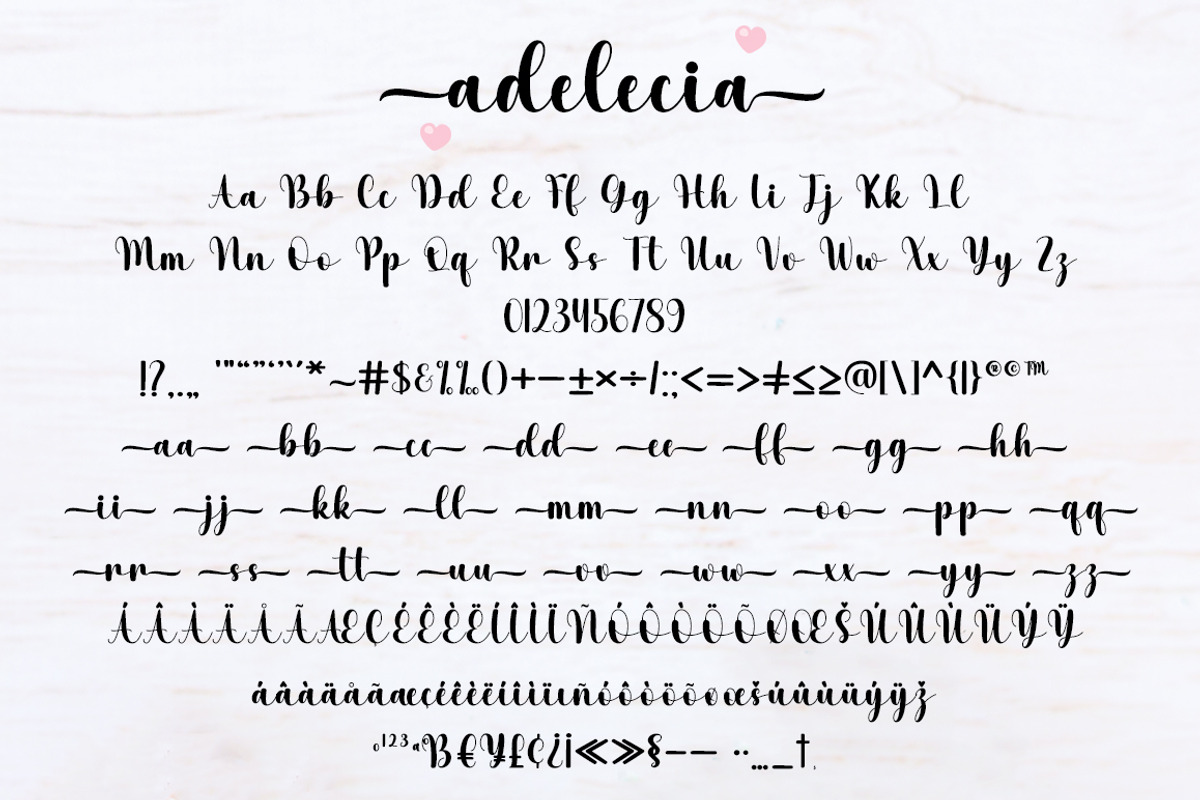 adelecia
Aa Bb Cc Dd Ee Ff Gg Hh Ii Jj Kk Ll
Mm Nn Oo Pp Qq Rr Ss Tt Uu Vv Ww Xx Yy Zz
0123456789
!?,.„ '"“”‘’`*~#$&%‰()+−±×÷/:;<=>≠≤≥@[\]^{|}®©™
aa bb cc dd ee ff gg hh
ii jj kk ll mm nn oo pp qq
rr ss tt uu vv ww xx yy zz
ÁÂÀÄÅÃÆÇÉÊÈËÍÎÌÏÑÓÔÒÖÕØŒŠÚÛÙÜÝŸ
áâàäåãæçéêèëíîìïıñóôòöõøœšúûùüýÿž
°¹²³ªºB€¥£¢¿¡≪≫§–— ··…_†.